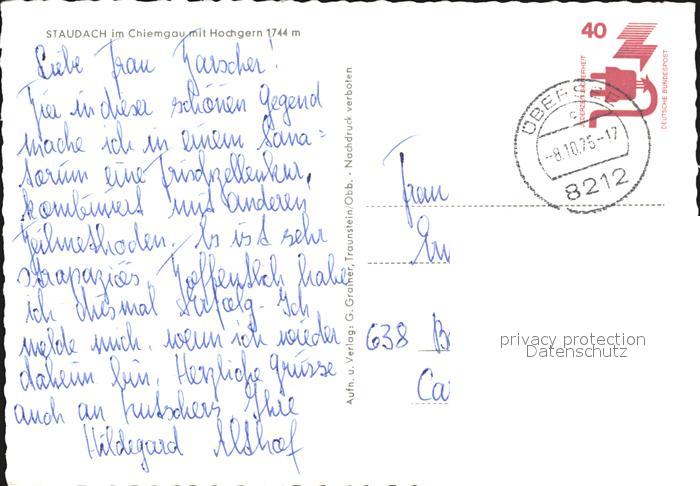 STAUDACH im Chiemgau mit Hochgern 1744 m
Liebe Frau
Hier in dieser schönen Gegend
mache ich in einem Sana=
torium eine Frischzellenkur,
kombiniert mit anderen
Heilmethoden. Es ist sehr
strapaziös. Hoffentlich habe
ich diesmal Erfolg. Ich
melde mich, wenn ich wieder
daheim bin. Herzliche Grüsse
auch an Ihre
Hildegard Althof
Aufn. u. Verlag: G. Grainer, Traunstein/Obb. - Nachdruck verboten
40
JEDERZEIT SICHERHEIT
DEUTSCHE BUNDESPOST
ÜBERSEE
-8.10.75-17
8212
Frau
638
privacy protection
Datenschutz